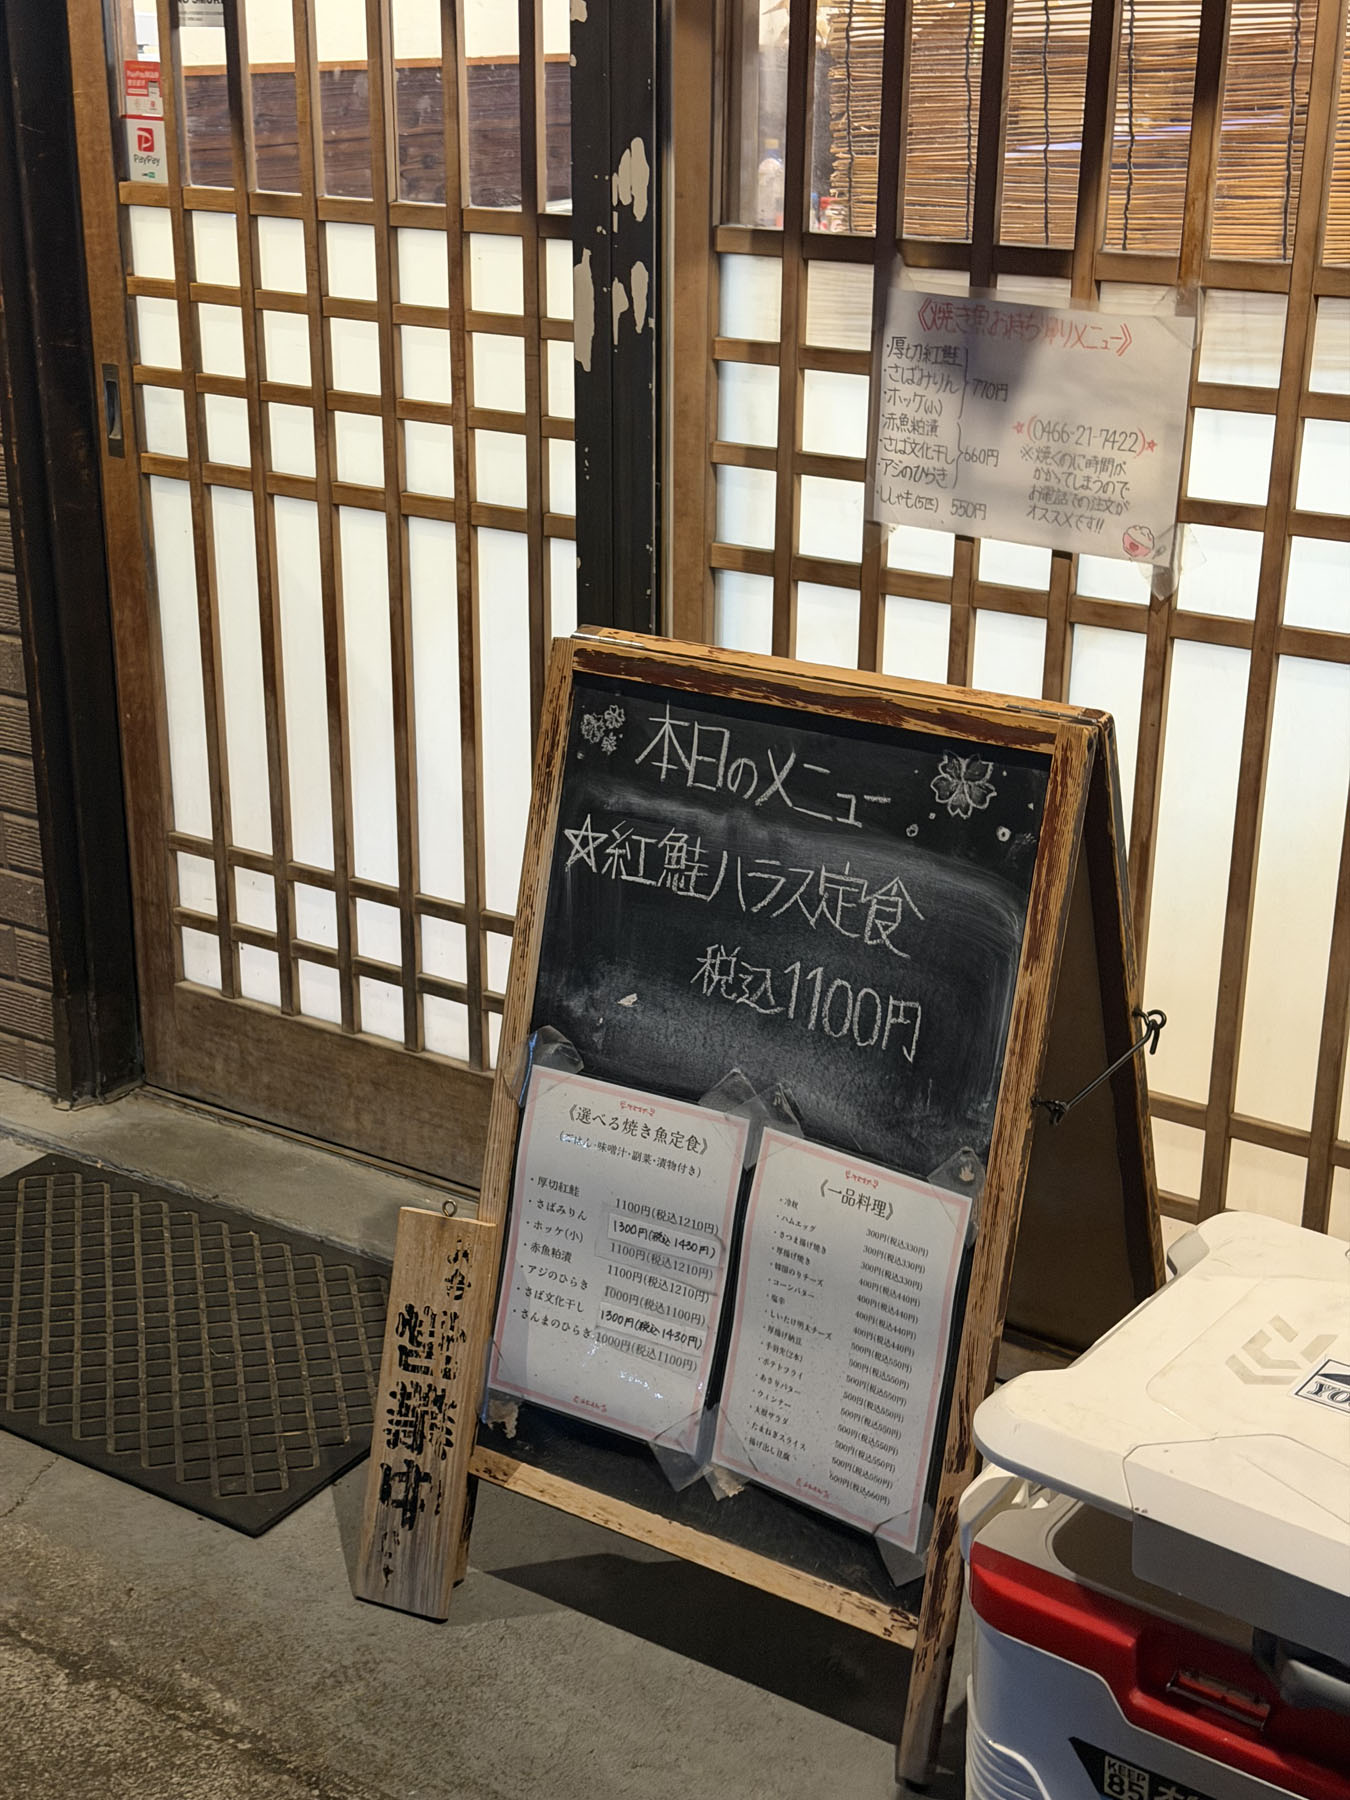 PayPay
《焼き魚お持ち帰りメニュー》
・厚切紅鮭
・さばみりん
・ホッケ(小)
770円
・赤魚粕漬
・さば文化干し
・アジのひらき
660円
・ししゃも(5匹) 550円
☆(0466-21-7422)☆
※焼くのに時間が
かかってしまうので
お電話での注文が
オススメです!!
本日のメニュー
☆紅鮭ハラス定食
税込1100円
《選べる焼き魚定食》
(ごはん・味噌汁・副菜・漬物付き)
・厚切紅鮭 1100円(税込1210円)
・さばみりん 1300円(税込1430円)
・ホッケ(小) 1100円(税込1210円)
・赤魚粕漬 1100円(税込1210円)
・アジのひらき 1000円(税込1100円)
・さば文化干し 1300円(税込1430円)
・さんまのひらき 1000円(税込1100円)
《一品料理》
・冷奴 300円(税込330円)
・ハムエッグ 300円(税込330円)
・さつま揚げ焼き 300円(税込330円)
・厚揚げ焼き 400円(税込440円)
・韓国のりチーズ 400円(税込440円)
・コーンバター 400円(税込440円)
・塩辛 400円(税込440円)
・しいたけ明太チーズ 500円(税込550円)
・厚揚げ納豆 500円(税込550円)
・手羽先(2本) 500円(税込550円)
・ポテトフライ 500円(税込550円)
・あさりバター 500円(税込550円)
・ウィンナー 500円(税込550円)
・大根サラダ 500円(税込550円)
・たまねぎスライス 500円(税込550円)
・揚げ出し豆腐 600円(税込660円)
営業中
KEEP
85